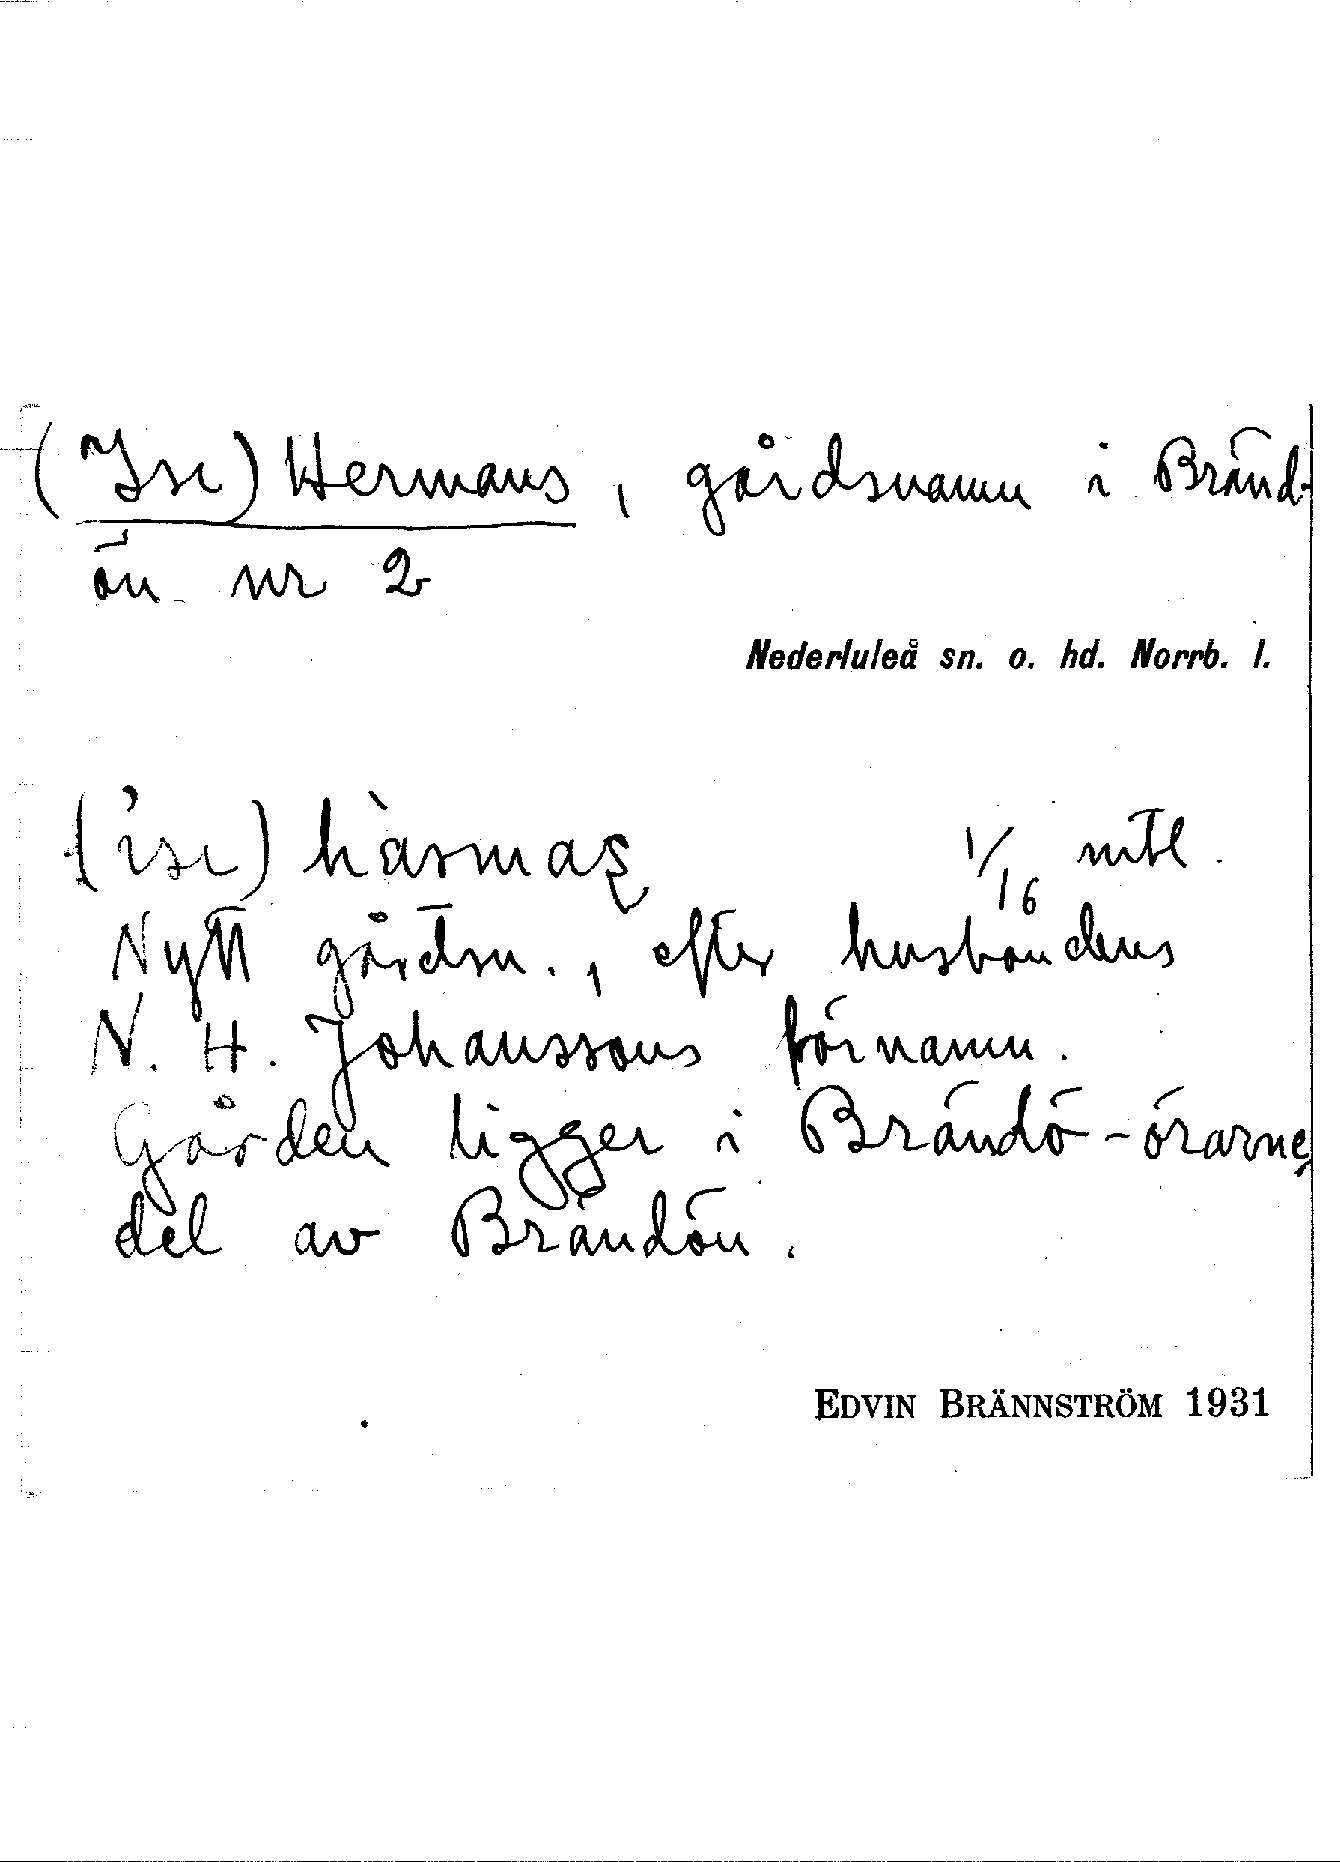 (Ise) Hermans, gårdsnamn i Bränd-
ön nr 2
Nederluleå sn. o. hd. Norrb. l.
1/16 mtl.
Nytt gårdsn., efter husbondens
N. H. Johanssons förnamn.
Gården ligger i Brändö-örarne,
del av Brändön.
EDVIN BRÄNNSTRÖM 1931